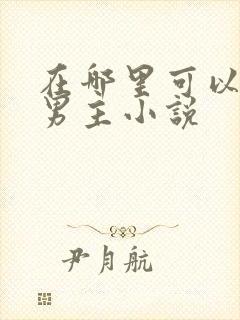 在哪里可以
男主小说
尹月航